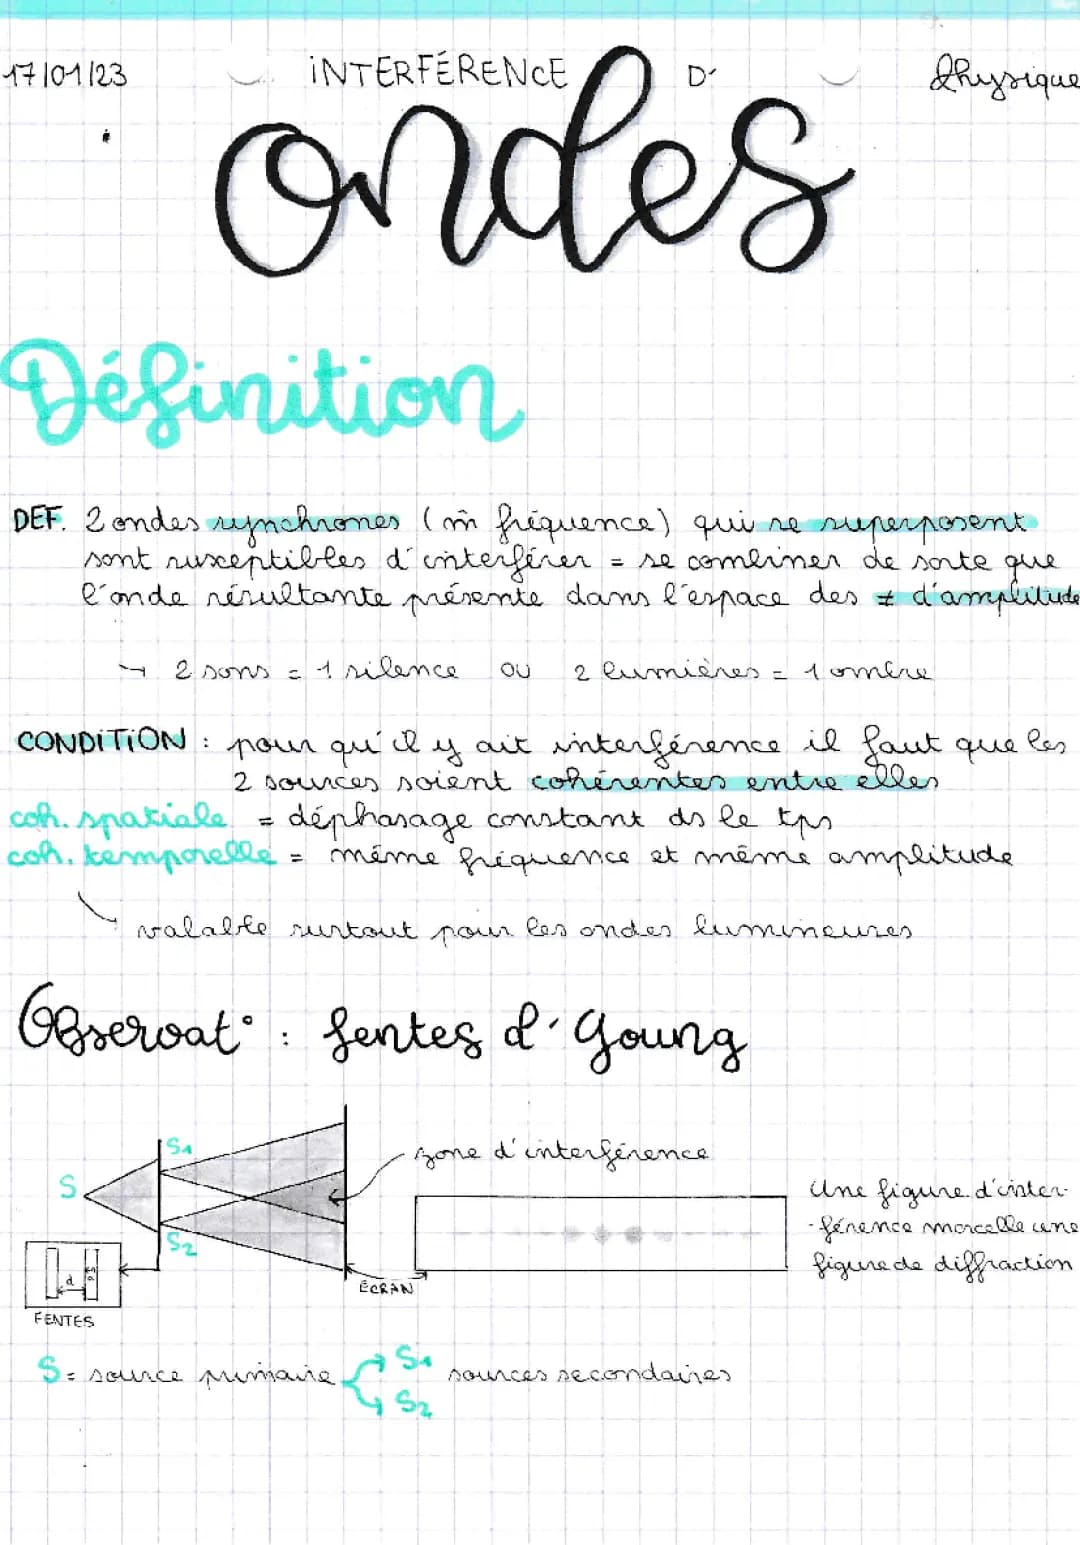 17/01/23
INTERFÉRENCE D'
Physique
ondes
Définition
DEF. 2 ondes synchrones (m̂ fréquence) qui se superposent
sont susceptibles d'interférer = se combiner de sorte que
l'onde résultante présente dans l'espace des ≠ d'amplitude
↳ 2 sons = 1 silence ou 2 lumières = 1 ombre
CONDITION : pour qu'il y ait interférence il faut que les
2 sources soient cohérentes entre elles
coh. spatiale = déphasage constant ds le tps
coh. temporelle = même fréquence et même amplitude
valable surtout pour les ondes lumineuses
Observat° : fentes d'Young
S1
zone d'interférence
S
Une figure d'inter-
-férence morcelle une
figure de diffraction
S2
d
a
ÉCRAN
FENTES
S = source primaire S1 sources secondaires
S2